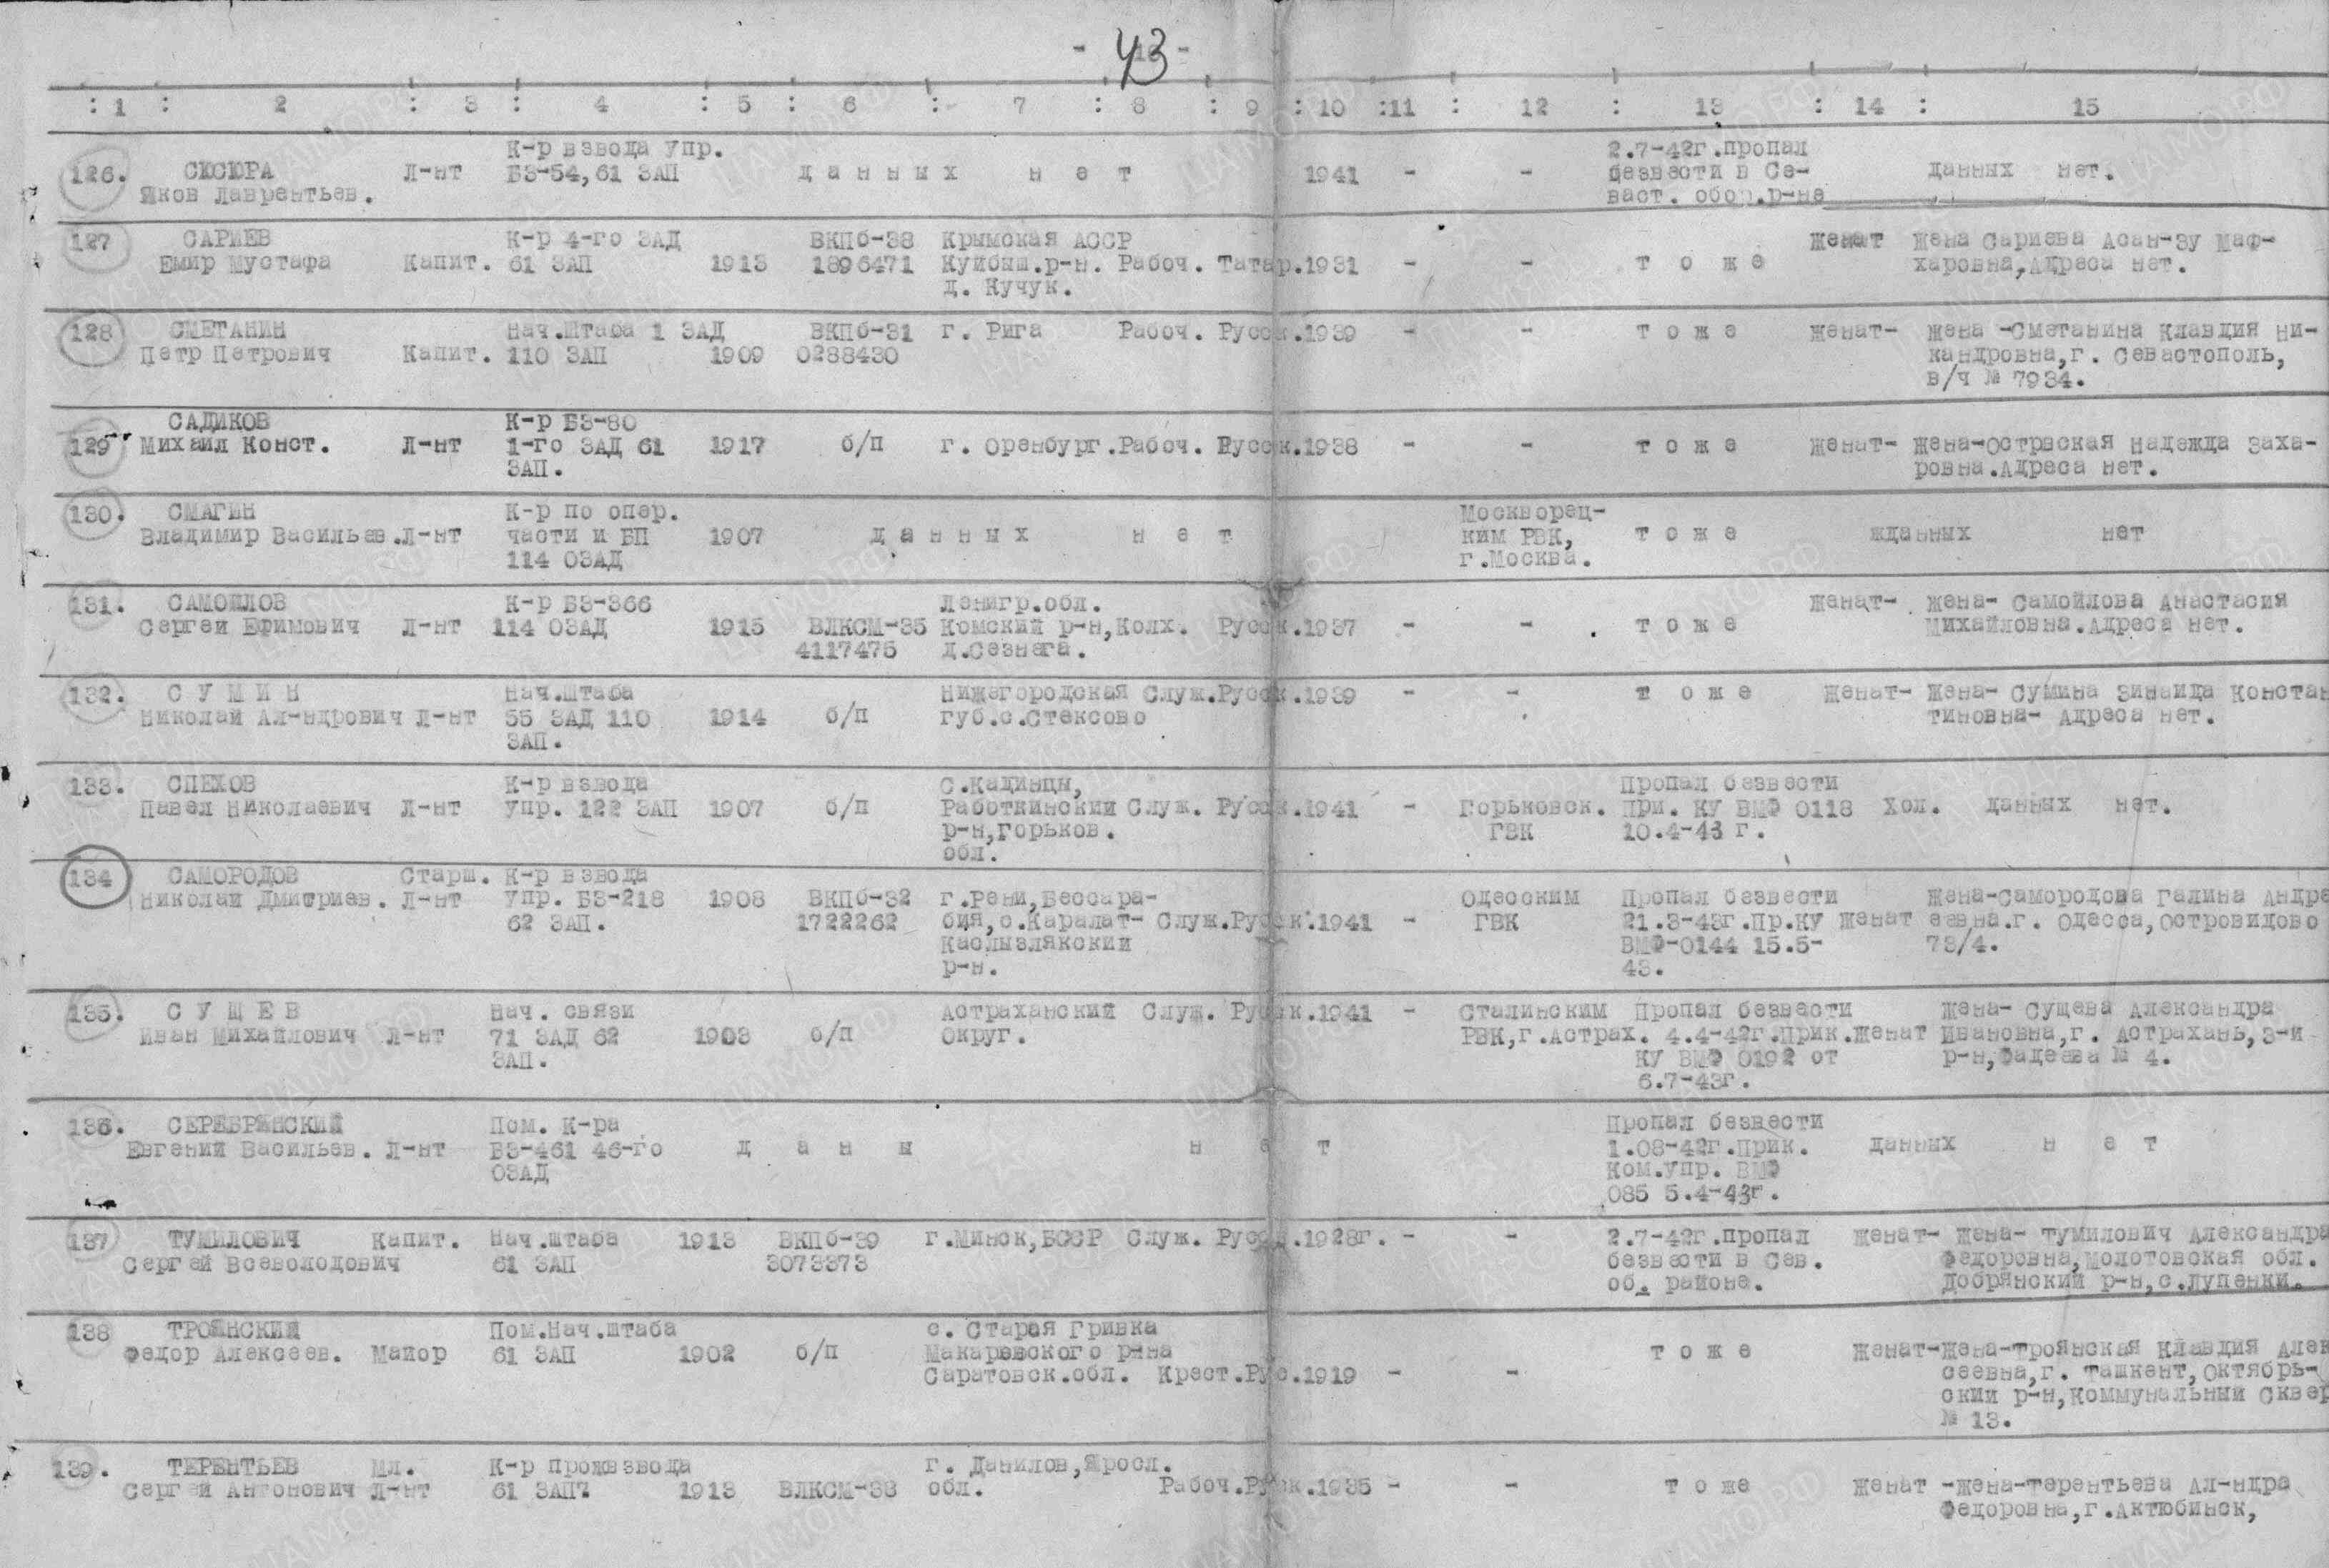 - 43 -
: 1 : 2 : 3 : 4 : 5 : 6 : 7 : 8 : 9 : 10 :11 : 12 : 13 : 14 : 15
К-р взвода упр. 2.7-42г.пропал
126. СЮСЮРА Л-нт БЗ-54,61 ЗАП данных нет 1941 - - безвести в Се- данных нет.
Яков Лаврентьев. васт. обор.р-не
127 САРИЕВ К-р 4-го ЗАД ВКПб-38 Крымская АССР женат жена Сариева Асан-Зу Маф-
Емир Мустафа Капит. 61 ЗАП 1913 1896471 Куйбыш.р-н. Рабоч. Татар.1931 - - тоже харовна,Адреса нет.
д. Кучук.
128 СМЕТАНИН Нач.штаба 1 ЗАД ВКПб-31 г. Рига Рабоч. Русск.1939 - - тоже женат- жена -Сметанина Клавдия Ни-
Петр Петрович Капит. 110 ЗАП 1909 0288430 кандровна,г. Севастополь,
в/ч № 7934.
САДИКОВ К-р БЗ-80
129 Михаил Конст. Л-нт 1-го ЗАД 61 1917 б/п г. Оренбург.Рабоч. Русск.1938 - - тоже женат- жена-Острвская Надежда Заха-
ЗАП. ровна.Адреса нет.
130. СМАГИН К-р по опер. Москворец-
Владимир Васильев.Л-нт части и БП 1907 данных нет ким РВК, тоже жданных нет
114 ОЗАД г.Москва.
131. САМОЙЛОВ К-р БЗ-366 Ленигр.обл. женат- жена- Самойлова Анастасия
Сергей Ефимович Л-нт 114 ОЗАД 1915 ВЛКСМ-35 Комский р-н,Колх. Русск.1937 - - тоже Михайловна.Адреса нет.
4117475 д.Сезнега.
132. СУМИН Нач.штаба Нижегородская Служ.Русск.1939 - - тоже женат- Жена- Сумина Зинаида Констан
Николай Ал-ндрович Л-нт 55 ЗАД 110 1914 б/п губ.с.Стексово тиновна- Адреса нет.
ЗАП.
133. СПЕХОВ К-р взвода С.Кадинцы, Пропал безвести
Павел Николаевич Л-нт упр. 122 ЗАП 1907 б/п Работкинский Служ. Русск.1941 - Горьковск. При. КУ ВМФ 0118 Хол. данных нет.
р-н,Горьков. ГВК 10.4-43 г.
обл.
134 САМОРОДОВ Старш. К-р взвода
Николай Дмитриев. Л-нт упр. БЗ-218 1908 ВКПб-32 г.Рени,Бессара- Одесским Пропал безвести Жена-Самородова Галина Андре
62 ЗАП. 1722262 бия,с.Каралат- Служ.Русск.1941 - ГВК 21.3-43г.Пр.КУ женат евна.г. Одесса,Островидово
Каслызлякский ВМФ-0144 15.5- 73/4.
р-н. 43.
135. СУЩЕВ Нач. связи Астраханский Служ. Русск.1941 - Сталинским Пропал безвести Жена- Сущева Александра
Иван Михайлович Л-нт 71 ЗАД 62 1903 б/п Округ. РВК,г.Астрах. 4.4-42г.Прик.женат Ивановна,г. Астрахань,3-й
ЗАП. КУ ВМФ 0192 от р-н,Фадеева № 4.
6.7-43г.
136. СЕРЕБРЯНСКИЙ Пом. К-ра Пропал безвести
Евгений Васильев. Л-нт БЗ-461 46-го даны нет 1.08-42г.Прик. данных нет
ОЗАД Ком.упр. ВМФ
085 5.4-43г.
137 ТУМИЛОВИЧ Капит. Нач.штаба 1913 ВКПб-39 г.Минск,БССР Служ. Русск.1928г. - - 2.7-42г.пропал женат- Жена- Тумилович Александра
Сергей Всеволодович 61 ЗАП 3073373 безвести в Сев. Федоровна,Молотовская обл.
об. районе. Добрянский р-н,с.Лупенки.
138 ТРОЯНСКИЙ Пом.Нач.штаба с. Старая Гривка
Федор Алексеев. Майор 61 ЗАП 1902 б/п Макаревского р-на тоже женат-Жена-Троянская Клавдия Алек
Саратовск.обл. Крест.Рус.1919 - - сеевна,г. Ташкент,Октябрь-
ский р-н,Коммунальный Сквер
№ 13.
139. ТЕРЕНТЬЕВ Мл. К-р прожвзвода г. Данилов,Яросл.
Сергей Антонович Л-нт 61 ЗАП 1913 ВЛКСМ-38 обл. Рабоч.Русск.1935 - - тоже женат -жена-Терентьева Ал-ндра
Федоровна,г.Актюбинск,